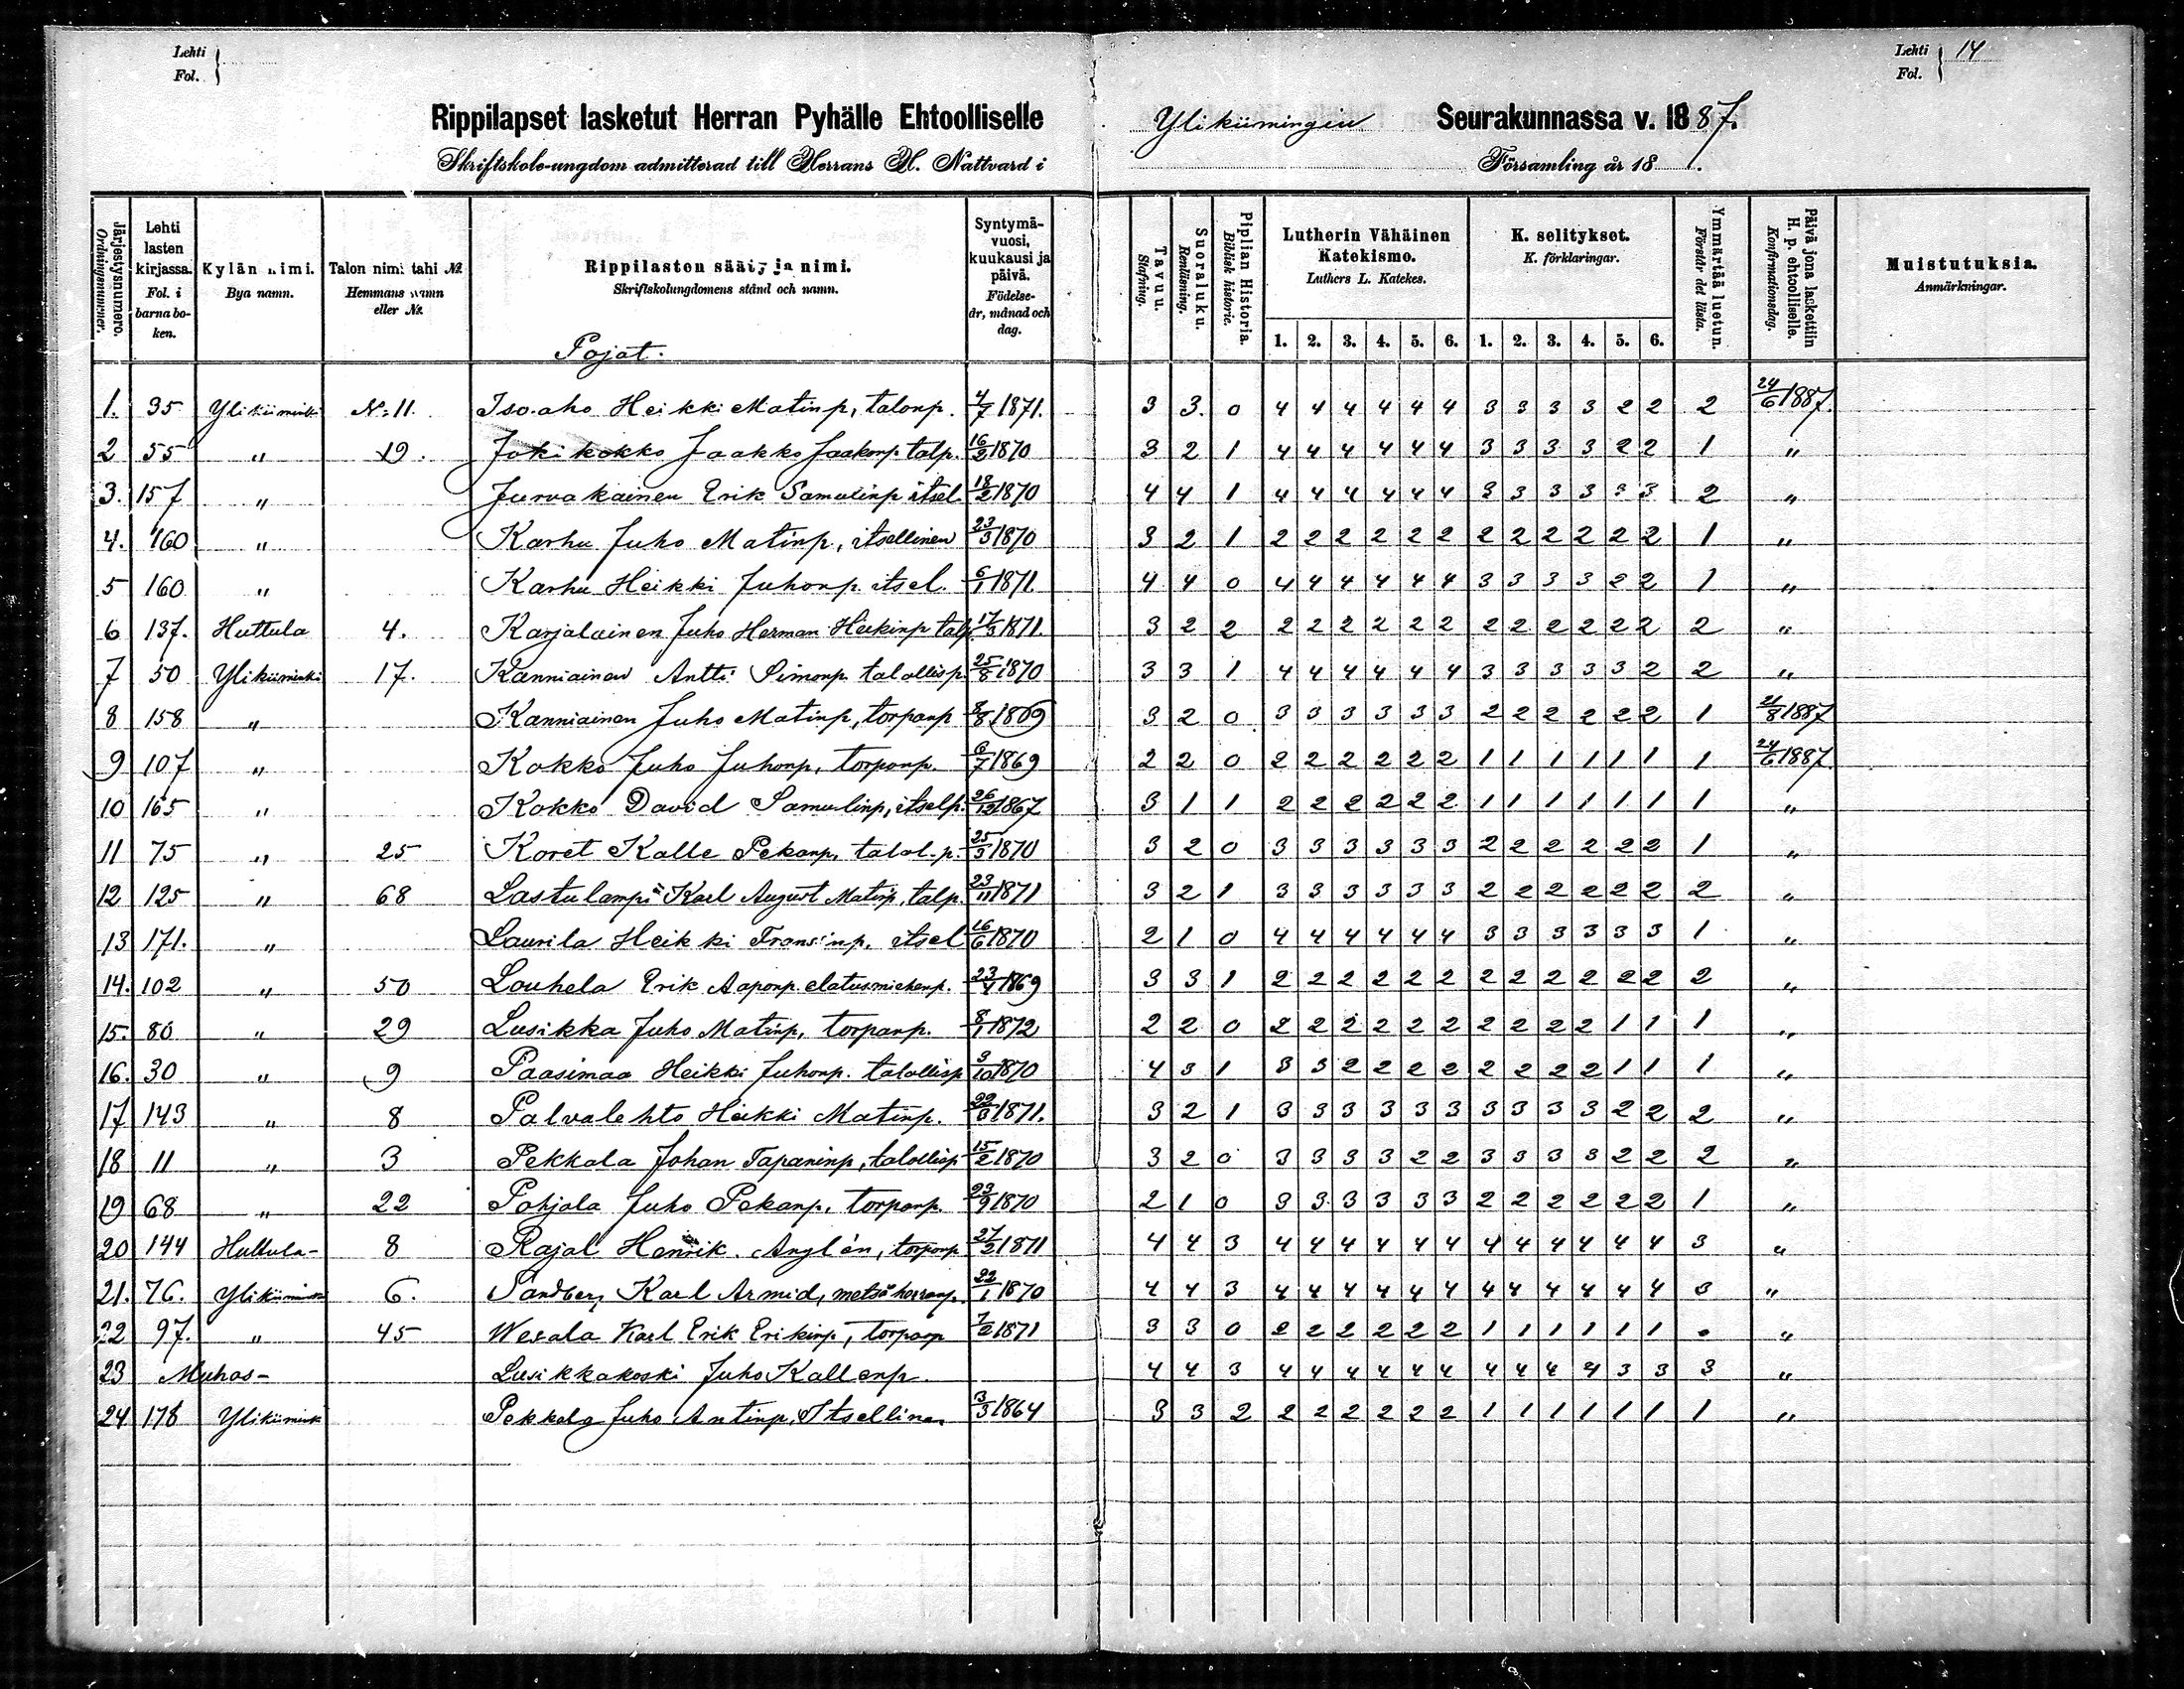 Lehti
Fol.
Lehti 14
Fol.
Rippilapset lasketut Herran Pyhälle Ehtoolliselle Ylikiimingin Seurakunnassa v. 1887.
Skriftskole-ungdom admitterad till Herrans H. Nattvard i Församling år 18 .
Järjestysnumero. Ordningsnummer.
Lehti lasten kirjassa. Fol. i barna boken.
Kylän nimi. Bya namn.
Talon nimi tahi №. Hemmans namn eller №.
Rippilasten sääty ja nimi. Skriftskolungdomens stånd och namn.
Syntymävuosi, kuukausi ja päivä. Födelseår, månad och dag.
Tavuu. Stafning.
Suoraluku. Renläsning.
Piplian Historia. Biblisk historie.
Lutherin Vähäinen Katekismo. Luthers L. Katekes. 1. 2. 3. 4. 5. 6.
K. selitykset. K. förklaringar. 1. 2. 3. 4. 5. 6.
Ymmärtää luetun. Förstår det lästa.
Päivä jona laskettiin H. p. ehtoolliselle. Konfirmationsdag.
Muistutuksia. Anmärkningar.
Pojat.
1. 35 Ylikiiminki N:11. Iso-aho Heikki Matinp, talonp. 4/7 1871. 3 3. 0 4 4 4 4 4 4 3 3 3 3 2 2 2 24/6 1887.
2 55 " 19. Jokikokko Jaakko Jaakonp. talp. 16/2 1870 3 2 1 4 4 4 4 4 4 3 3 3 3 2 2 1 "
3. 157 " Jurvakainen Erik Samulinp itsel. 18/2 1870 4 4 1 4 4 4 4 4 4 3 3 3 3 3 3 2 "
4. 160 " Karhu Juho Matinp, itsellinen 23/3 1870 3 2 1 2 2 2 2 2 2 2 2 2 2 2 2 1 "
5 160 " Karhu Heikki Juhonp. itsel. 6/1 1871. 4 4 0 4 4 4 4 4 4 3 3 3 3 2 2 1 "
6 137. Huttula 4. Karjalainen Juho Herman Heikinp talp. 17/3 1871. 3 2 2 2 2 2 2 2 2 2 2 2 2 2 2 2 "
7 50 Ylikiiminki 17. Kanniainen Antti Simonp. talollisp. 25/8 1870 3 3 1 4 4 4 4 4 4 3 3 3 3 3 2 2 "
8 158 " Kanniainen Juho Matinp, torparip 8/8 1869 3 2 0 3 3 3 3 3 3 2 2 2 2 2 2 1 21/8 1887
9 107 " Kokko Juho Juhonp, torparip. 6/7 1869 2 2 0 2 2 2 2 2 2 1 1 1 1 1 1 1 24/6 1887
10 165 " Kokko David Samulinp, itselp. 26/12 1867 3 1 1 2 2 2 2 2 2 1 1 1 1 1 1 1 "
11 75 " 25 Koret Kalle Pekanp, talol-p. 25/3 1870 3 2 0 3 3 3 3 3 3 2 2 2 2 2 2 1 "
12 125 " 68 Lastulampi Karl August Matinp, talp. 23/11 1871 3 2 1 3 3 3 3 3 3 2 2 2 2 2 2 2 "
13 171. " Laurila Heikki Fransinp. itsel 16/6 1870 2 1 0 4 4 4 4 4 4 3 3 3 3 3 3 1 "
14. 102 " 50 Louhela Erik Aaponp. elatusmiehenp. 23/4 1869 3 3 1 2 2 2 2 2 2 2 2 2 2 2 2 2 "
15. 80 " 29 Lusikka Juho Matinp, torparp. 8/1 1872 2 2 0 2 2 2 2 2 2 2 2 2 2 1 1 1 "
16. 30 " 9 Paasimaa Heikki Juhonp. talollisp 3/10 1870 4 3 1 3 3 2 2 2 2 2 2 2 2 1 1 1 "
17 143 " 8 Palvalehto Heikki Matinp. 1871. 3 2 1 3 3 3 3 3 3 3 3 3 3 2 2 2 "
18 11 " 3 Pekkala Johan Tapaninp, talollisp 15/2 1870 3 2 0 3 3 3 3 2 2 3 3 3 3 2 2 2 "
19 68 " 22 Pohjola Juho Pekanp, torparp. 23/9 1870 2 1 0 3 3 3 3 3 3 2 2 2 2 2 2 1 "
20 144 Huttula- 8 Rajal Henrik Anglén, torparp 27/2 1871 4 4 3 4 4 4 4 4 4 4 4 4 4 4 4 3 "
21. 76. Ylikiiminki 6. Sandberg Karl Armid, metsäherranp. 22/1 1870 4 4 3 4 4 4 4 4 4 4 4 4 4 4 4 3 "
22 97. " 45 Wesala Karl Erik Erikinp, torparp 7/2 1871 3 3 0 2 2 2 2 2 2 1 1 1 1 1 1 "
23 Muhos- Lusikkakoski Juho Kallenp. 4 4 3 4 4 4 4 4 4 4 4 4 4 3 3 3 "
24 178 Ylikiimink Pekkala Juho Antinp, Itsellinen 3/3 1864 3 3 2 2 2 2 2 2 2 1 1 1 1 1 1 1 "